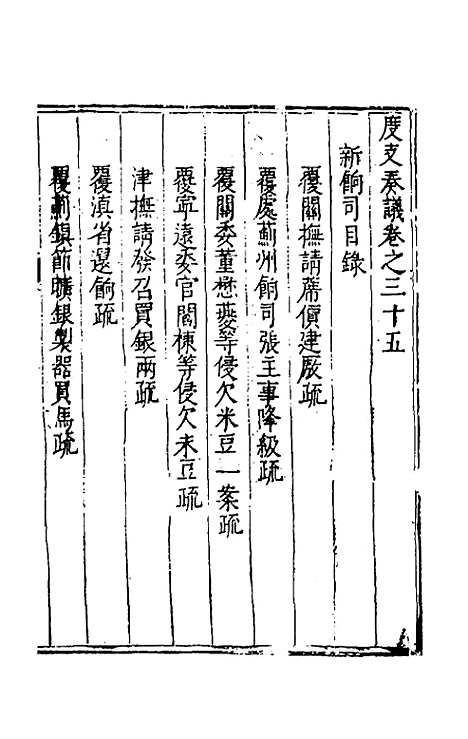 度支奏議卷之三十五
新餉司目錄
覆關撫請蓆價建廒疏
覆處薊州餉司張主事降級疏
覆關委董懋爕等侵欠米豆一案疏
覆寧遠委官閻棟等侵欠米豆疏
津撫請發召買銀兩疏
覆滇省遼餉疏
覆薊鎮節曠銀製器買馬疏